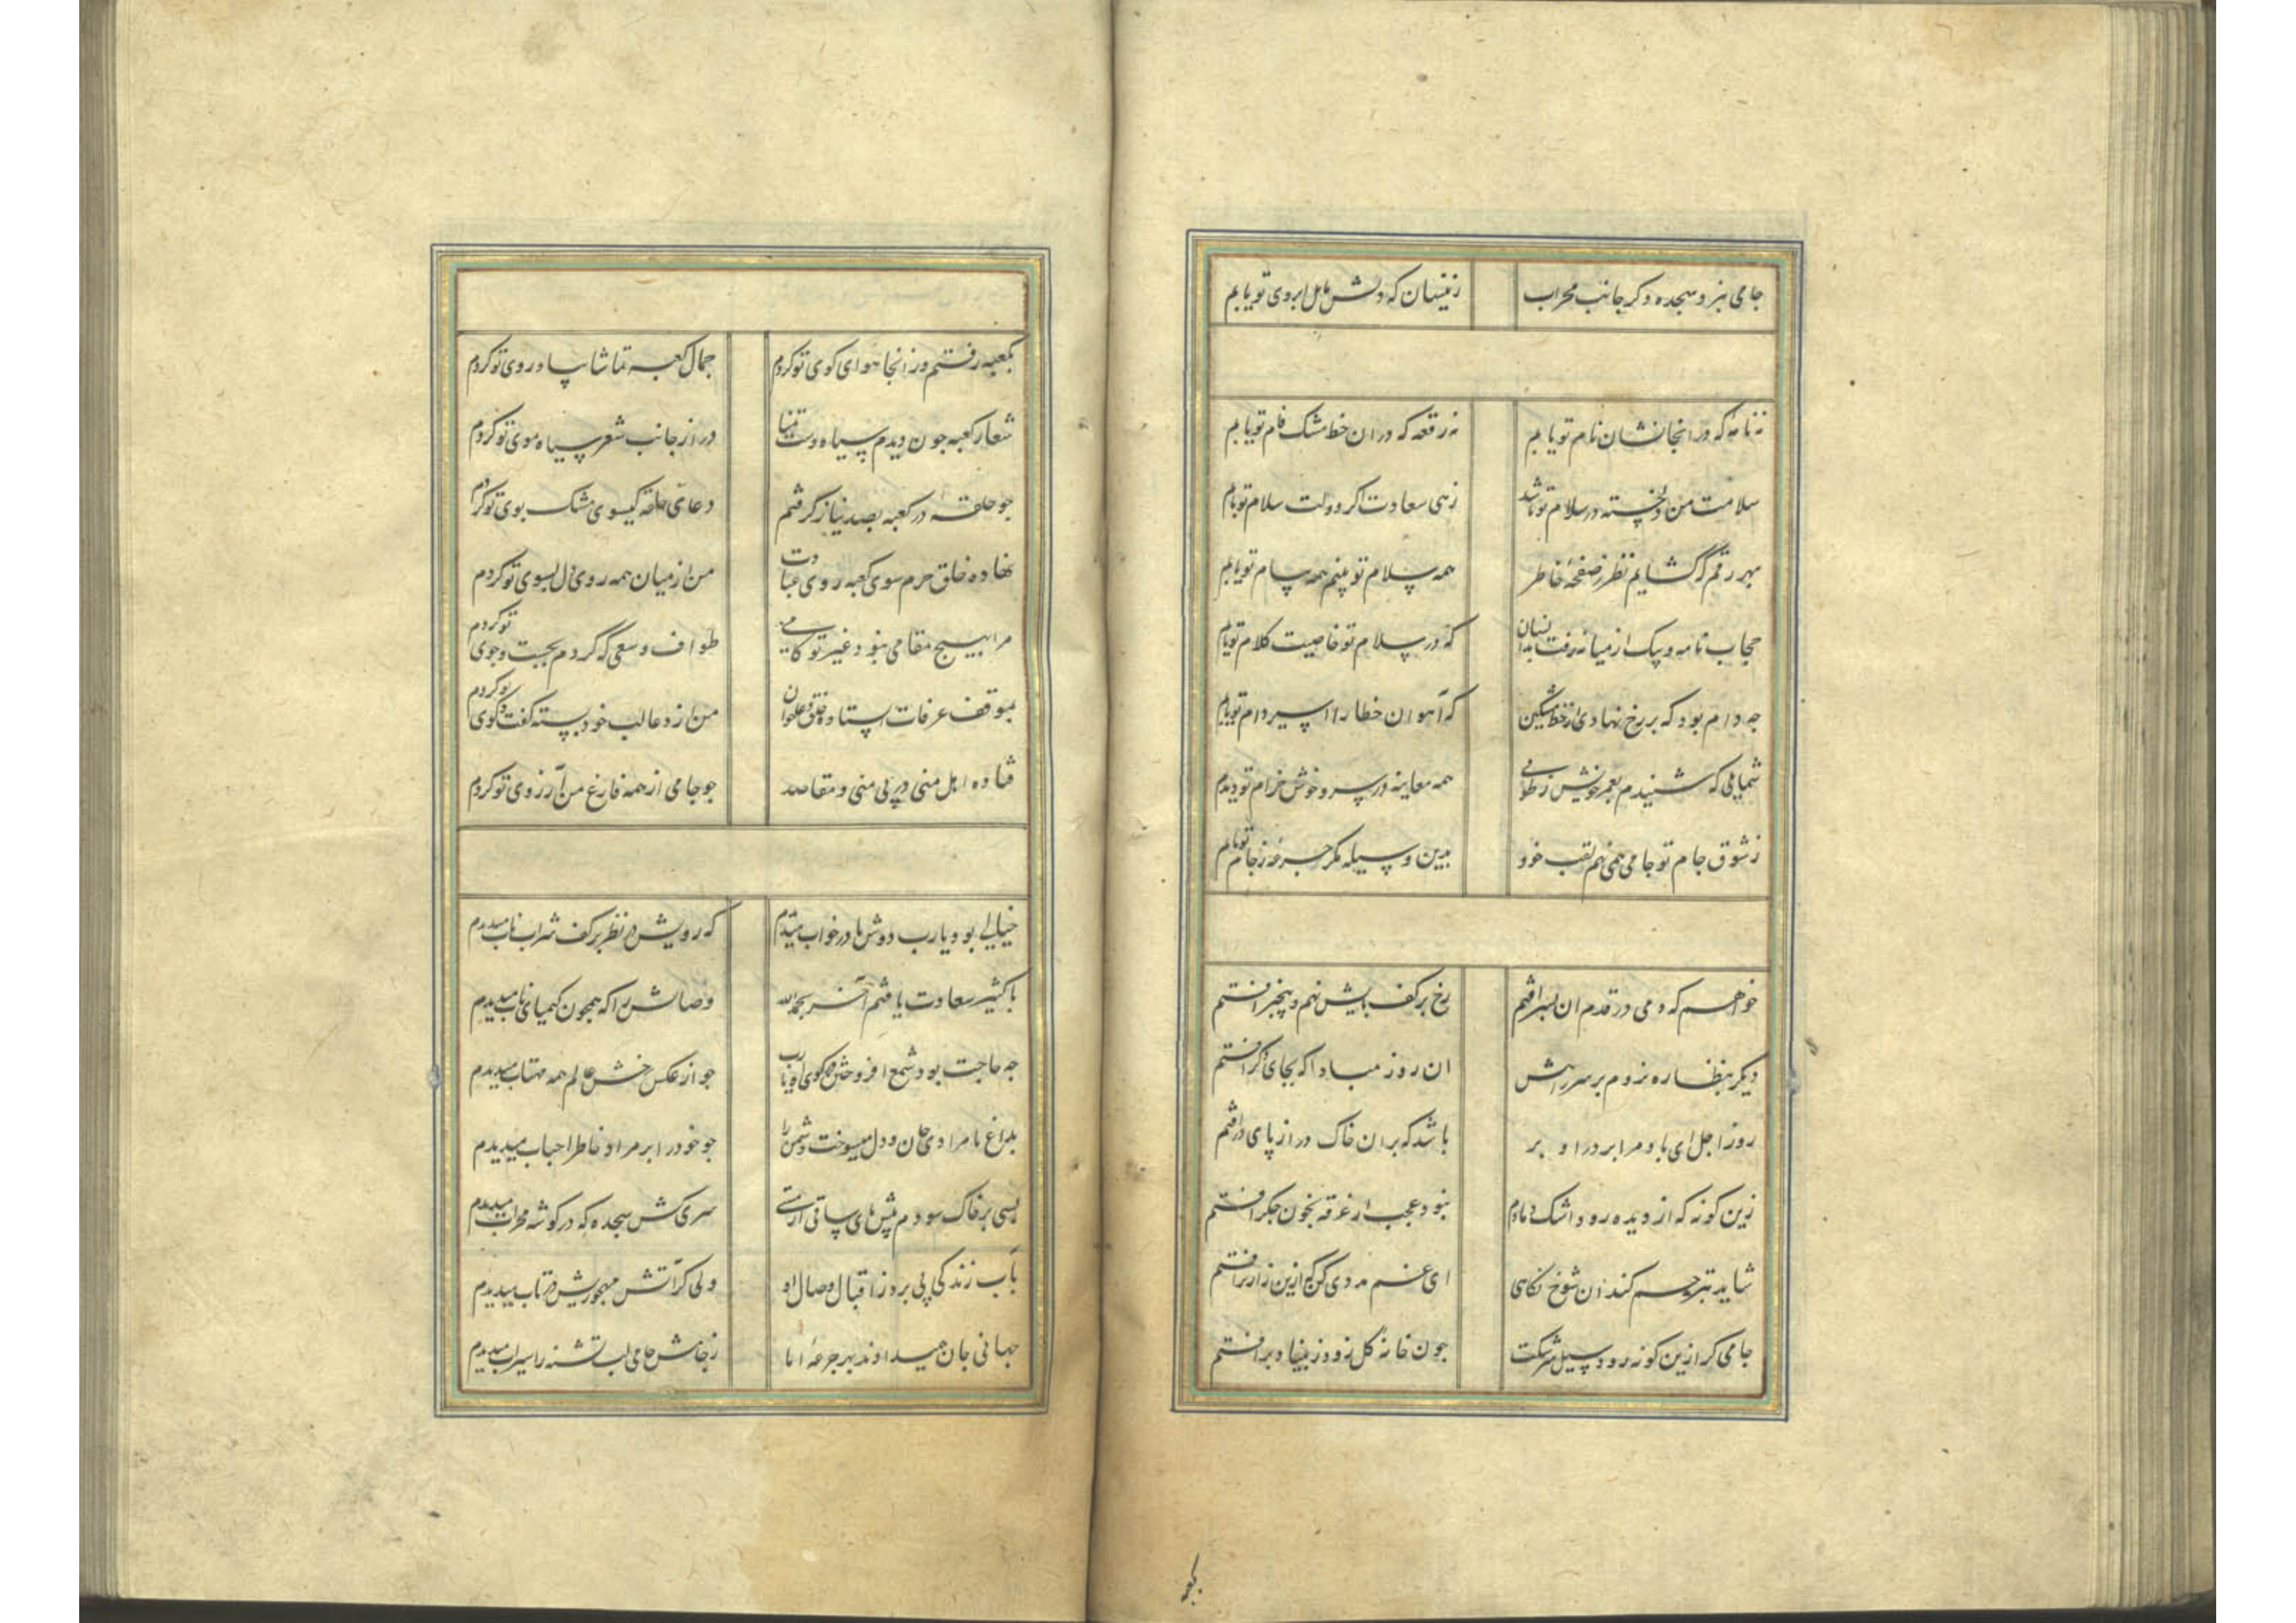 جامی نبرد سجده دگر جانب محراب زینسان که دلش مایل ابروی تو یابم
نه نامهٔ که در انجا نشان نام تو یابم نه رقعه که دران خط مشک فام تو یابم
سلامت من دلخسته در سلام تو باشد زهی سعادت اگر دولت سلام تو یابم
بهر رقم که گشایم نظر ز صفحهٔ خاطر همه سلام تو بینم همه پیام تو یابم
حجاب نامه و پیک از میانه رفت بدانسان که در سلام تو خاصیت کلام تو یابم
چه دام بود که بر رخ نهادی از خط مشکین که آهوان خطا را اسیر دام تو یابم
شمایلی که شنیدم بعمر خویش ز طوبی همه معاینه در سرو خوش خرام تو دیدم
ز شوق جام تو جامی همی نهم لقب خود بدین وسیله مگر جرعهٔ ز جام تو یابم
خواهم که دمی در قدم ان پسر افتم رخ بر کف پایش نهم و بیخبر افتم
دیگر بنظاره نروم بر سر راهش ان روز مبادا که بجای دگر افتم
روز اجل ای باد مرا بر در او بر باشد که بران خاک در از پای در افتم
زین کونه که از دیده رود اشک دمادم نبود عجب ار غرقه بخون جگر افتم
شاید بترحم کند ان شوخ نگاهی ای غم مددی کن که ازین زارتر افتم
جامی کر ازین کونه رود سیل سرشکت چون خانه گل زود ز بنیاد بر افتم
بکعبه
بکعبه رفتم و زانجا هوای کوی تو کردم جمال کعبه تماشا بیاد روی تو کردم
شعار کعبه چون دیدم سیاه دست تمنا دراز جانب شعر سیاه موی تو کردم
چو حلقهٔ در کعبه بصد نیاز گرفتم دعای حلقه گیسوی مشک بوی تو کردم
نهاده خلق حرم سوی کعبه روی عبادت من از میان همه روی دل بسوی تو کردم
مرا بهیچ مقامی نبود غیر تو کامی طواف و سعی که کردم بجست و جوی تو کردم
بموقف عرفات ایستاده خلق دعاخوان من از دعا لب خود بسته گفت و گوی تو کردم
فتاده اهل منی در پی منی و مقاصد چو جامی از همه فارغ من آرزوی تو کردم
خیالی بود یارب دوش یا در خواب میدیدم که رویش در نظر بر کف شراب ناب میدیدم
باکسیر سعادت یافتم آخر بحمدالله وصالش را که همچون کیمیا نایاب میدیدم
چه حاجت بود شمع افروختن در کوی او یارب چو از عکس رخش عالم همه مهتاب میدیدم
بداغ نامرادی جان و دل میسوخت دشمن را چو خود را بر مراد خاطر احباب میدیدم
بسی بر خاک سودم پیش پای ساقی از مستی سری کش سجده که در کوشه محراب میدیدم
بآب زندگی پی برد ز اقبال وصال او دلی کز آتش مهجوریش در تاب میدیدم
جهانی جان همیدادند بهر جرعهٔ اما ز جامش جامی لب تشنه را سیراب میدیدم